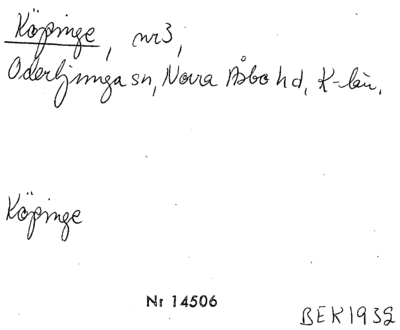 Köpinge, nr 3,
Oderljunga sn, Norra Åbo hd, K-län.
Köpinge
Nr 14506
BEK 1932